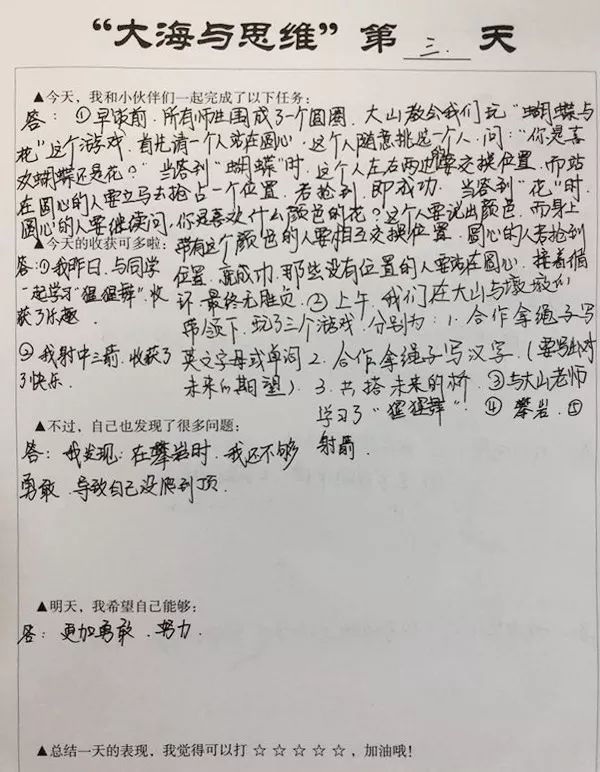 “大海与思维”第 三. 天
▲今天，我和小伙伴们一起完成了以下任务：
答：①早饭前.所有师生围成了一个圆圈.大山教会我们玩“蝴蝶与
花”这个游戏.首先请一个人站在圆心，这个人随意挑选一个人.问：“你是喜
欢蝴蝶还是花？”当答到“蝴蝶”时.这个人左右两边要交换位置.而站
在圆心的人要立马去抢占一个位置.若抢到.即成功.当答到“花”时.
圆心的人要继续问,你是喜欢什么颜色的花？这个人要说出颜色.而身上
带有这个颜色的人要相互交换位置.圆心的人若抢到
位置.变成功.那些没有位置的人要站在圆心.接着循
环.最终无胜负.②上午.我们在大山与
带领下.玩了三个游戏.分别为：1.合作拿绳子写
英文字母或单词 2.合作拿绳子写汉字.(要写出对
未来的期望). 3.共搭未来的桥.③与大山老师
学习了“猩猩舞”.④ 攀岩.⑤
射箭.
▲今天的收获可多啦：
答:①我昨日.与同学
一起学习“猩猩舞”.收
获了乐趣.
②我射中三箭.收获了
了快乐.
▲不过，自己也发现了很多问题：
答：我发现：在攀岩时.我还不够
勇敢.导致自己没爬到顶.
▲明天，我希望自己能够：
答：更加勇敢.努力.
▲总结一天的表现，我觉得可以打 ☆ ☆ ☆ ☆ ☆，加油哦！